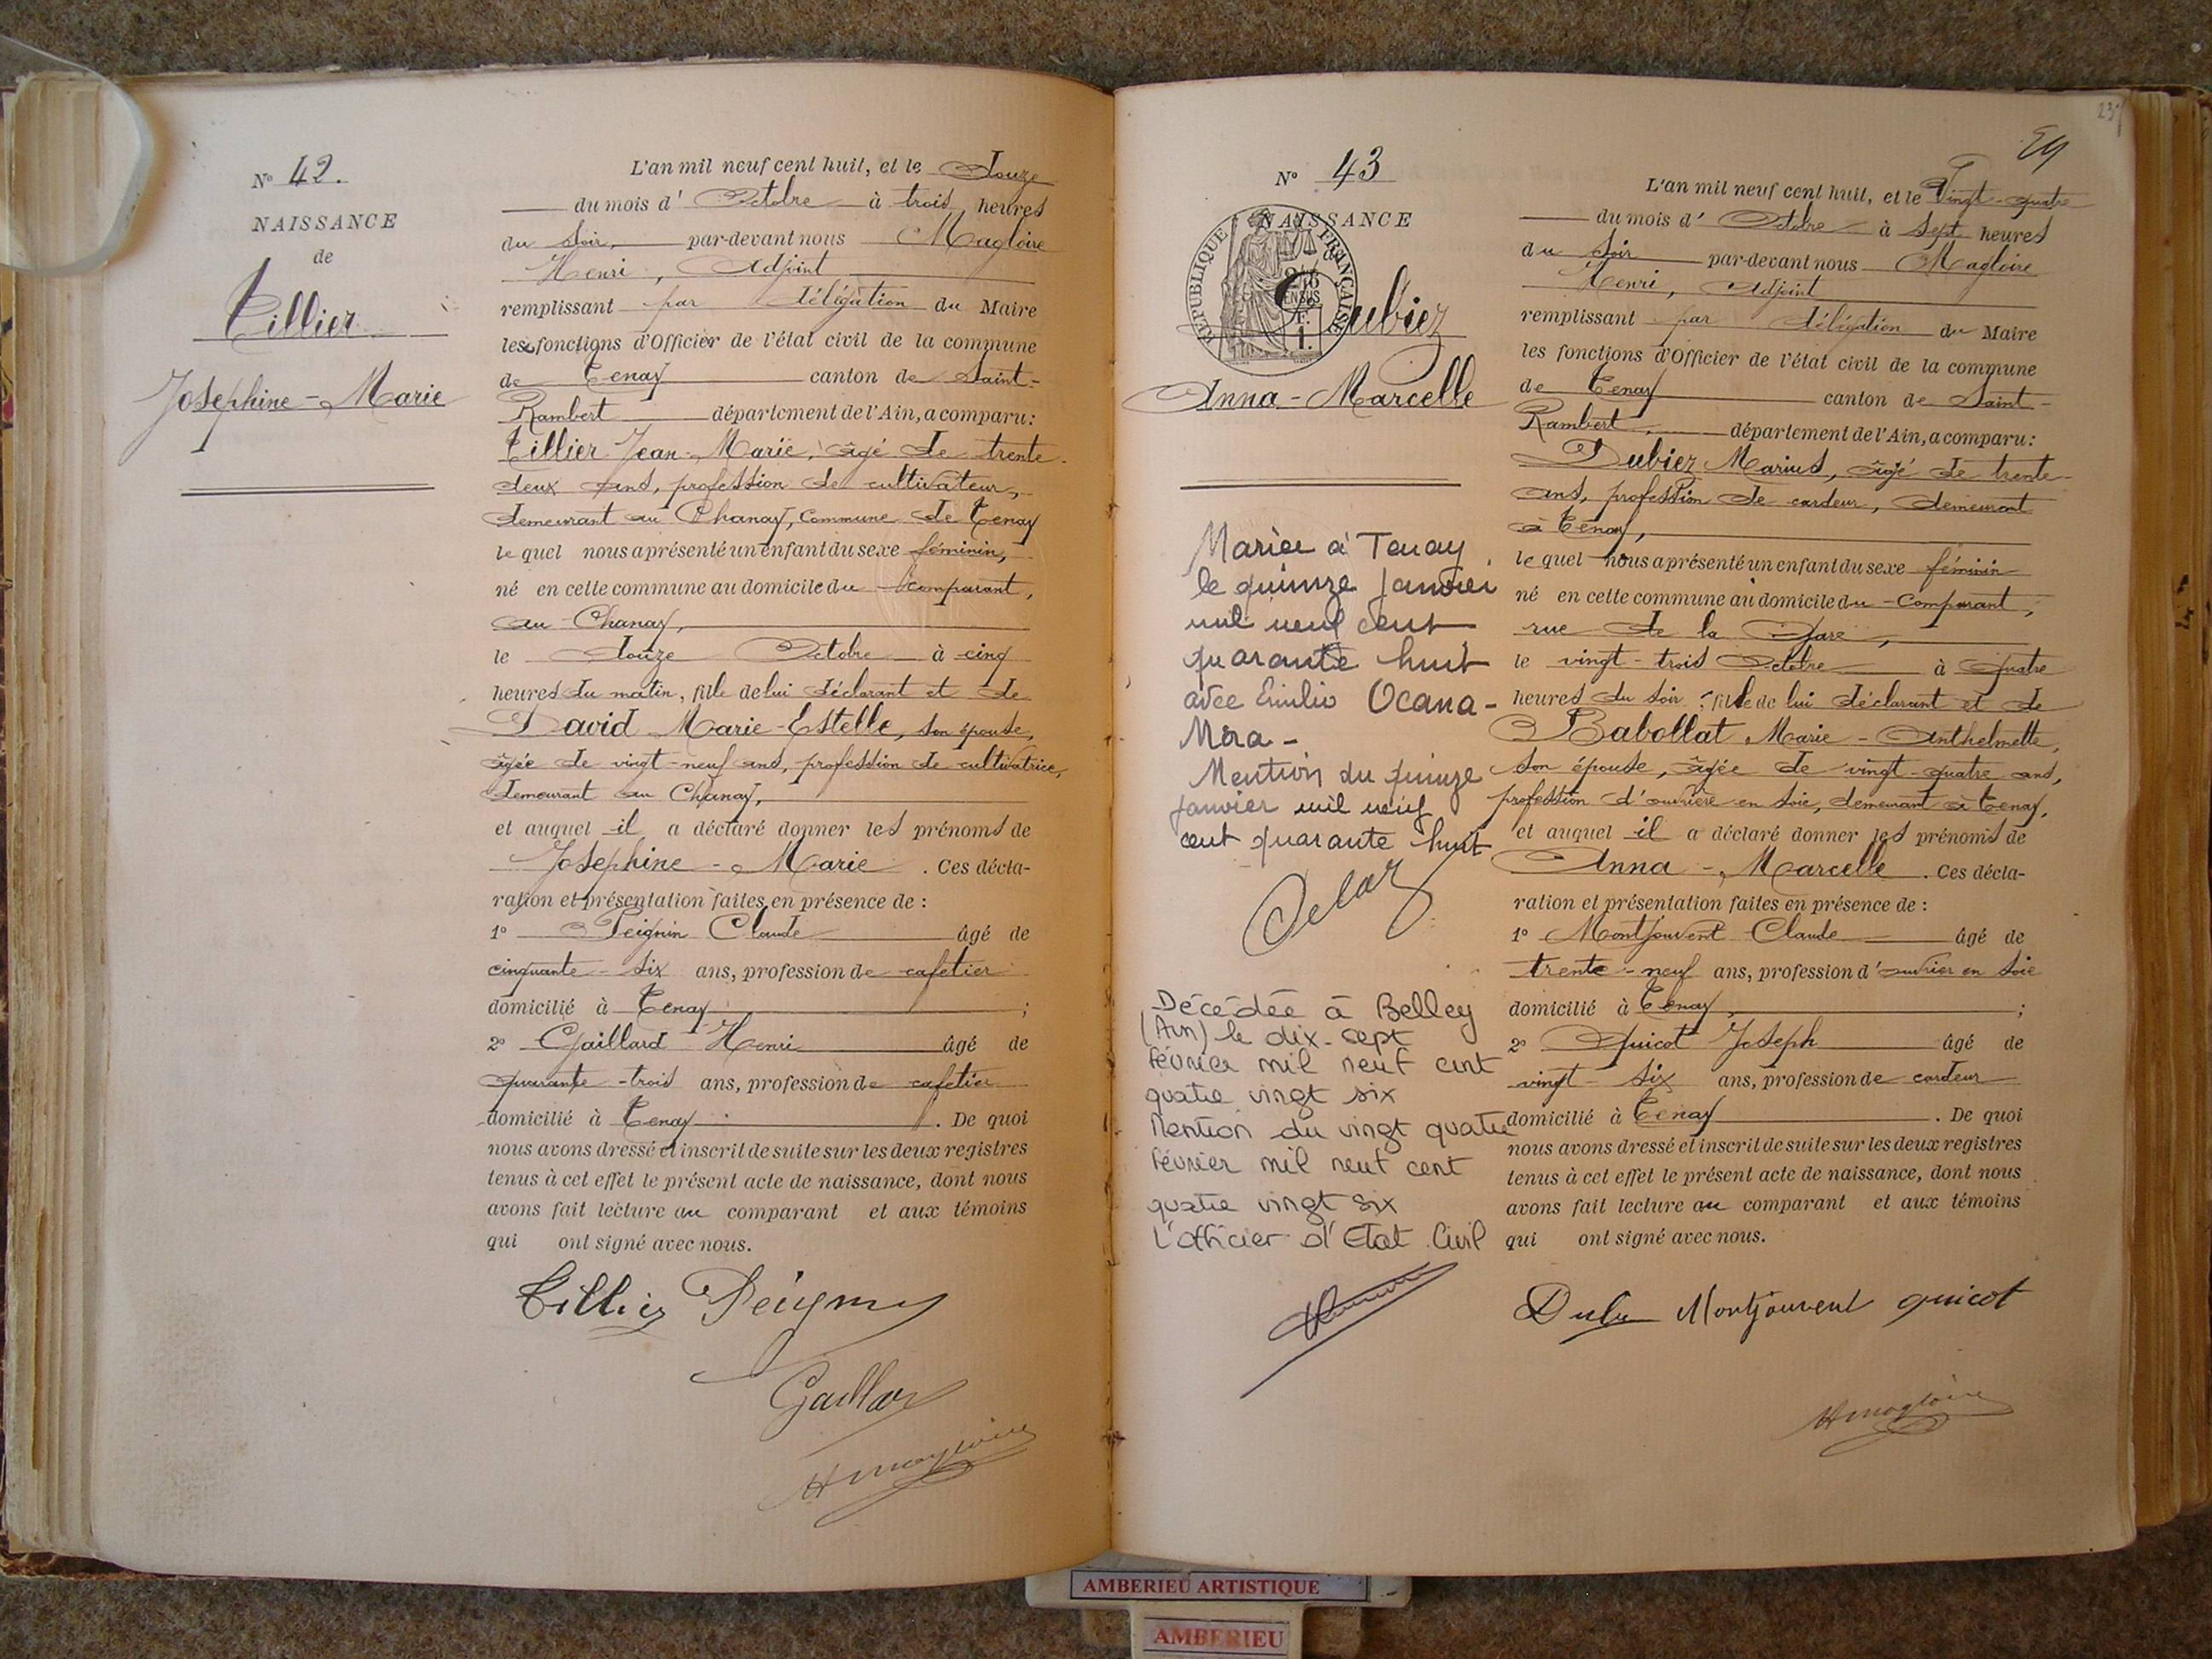 Nº 42.
NAISSANCE
de
Tillier
Josephine - Marie
L'an mil neuf cent huit, et le Douze
du mois d' Octobre à trois heures
du soir, par-devant nous Magloire
Henri, Adjoint
remplissant par délégation du Maire
les fonctions d'Officier de l'état civil de la commune
de Tenay canton de Saint-
Rambert département de l'Ain, a comparu:
Tillier Jean-Marie, âgé de trente-
deux ans, profession de cultivateur,
demeurant au Chanay, commune de Tenay
lequel nous a présenté un enfant du sexe féminin,
né en cette commune au domicile du comparant,
au Chanay,
le douze Octobre à cinq
heures du matin, fille de lui déclarant et de
David Marie-Estelle, son épouse,
âgée de vingt-neuf ans, profession de cultivatrice,
demeurant au Chanay,
et auquel il a déclaré donner les prénoms de
Josephine - Marie. Ces décla-
ration et présentation faites en présence de :
1º Peignin Claude âgé de
cinquante-six ans, profession de cafetier
domicilié à Tenay ;
2º Gaillard Henri âgé de
quarante-trois ans, profession de cafetier
domicilié à Tenay. De quoi
nous avons dressé et inscrit de suite sur les deux registres
tenus à cet effet le présent acte de naissance, dont nous
avons fait lecture au comparant et aux témoins
qui ont signé avec nous.
Tillier Peignin
Gaillard
H Magloire
23
29
Nº 43
NAISSANCE
de
RÉPUBLIQUE FRANÇAISE
Dubiez
Anna-Marcelle
Mariée à Tenay
le quinze janvier
mil neuf cent
quarante huit
avec Emilio Ocana-
Mora -
Mention du quinze
janvier mil neuf
cent quarante huit
Décédée à Belley
(Ain) le dix-sept
février mil neuf cent
quatre vingt six
Mention du vingt quatre
février mil neuf cent
quatre vingt six
L'officier d'Etat Civil
L'an mil neuf cent huit, et le Vingt-quatre
du mois d' Octobre à sept heures
du soir par-devant nous Magloire
Henri, Adjoint
remplissant par délégation du Maire
les fonctions d'Officier de l'état civil de la commune
de Tenay canton de Saint-
Rambert, département de l'Ain, a comparu:
Dubiez Marius, âgé de trente-
ans, profession de cardeur, demeurant
à Tenay,
lequel nous a présenté un enfant du sexe féminin
né en cette commune au domicile du Comparant,
rue de la Gare,
le vingt-trois Octobre à quatre
heures du soir, fille de lui déclarant et de
Babollat Marie-Anthelmette,
son épouse, âgée de vingt-quatre ans,
profession d'ouvrière en soie, demeurant à Tenay,
et auquel il a déclaré donner les prénoms de
Anna-Marcelle. Ces décla-
ration et présentation faites en présence de :
1º Montjouvent Claude âgé de
trente-neuf ans, profession d'ouvrier en soie
domicilié à Tenay, ;
2º Quicot Joseph âgé de
vingt-six ans, profession de cardeur
domicilié à Tenay. De quoi
nous avons dressé et inscrit de suite sur les deux registres
tenus à cet effet le présent acte de naissance, dont nous
avons fait lecture au comparant et aux témoins
qui ont signé avec nous.
Montjouvent quicot
H Magloire
AMBERIEU ARTISTIQUE
AMBERIEU